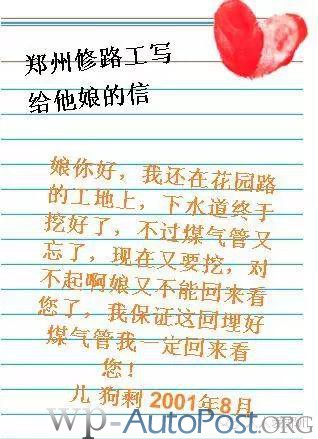 郑州修路工写
给他娘的信
娘你好，我还在花园路
的工地上，下水道终于
挖好了，不过煤气管又
忘了，现在又要挖，对
不起啊娘又不能回来看
您了，我保证这回埋好
煤气管我一定回来看
您！
儿 狗剩 2001年8月
wp-AutoPost.ORG